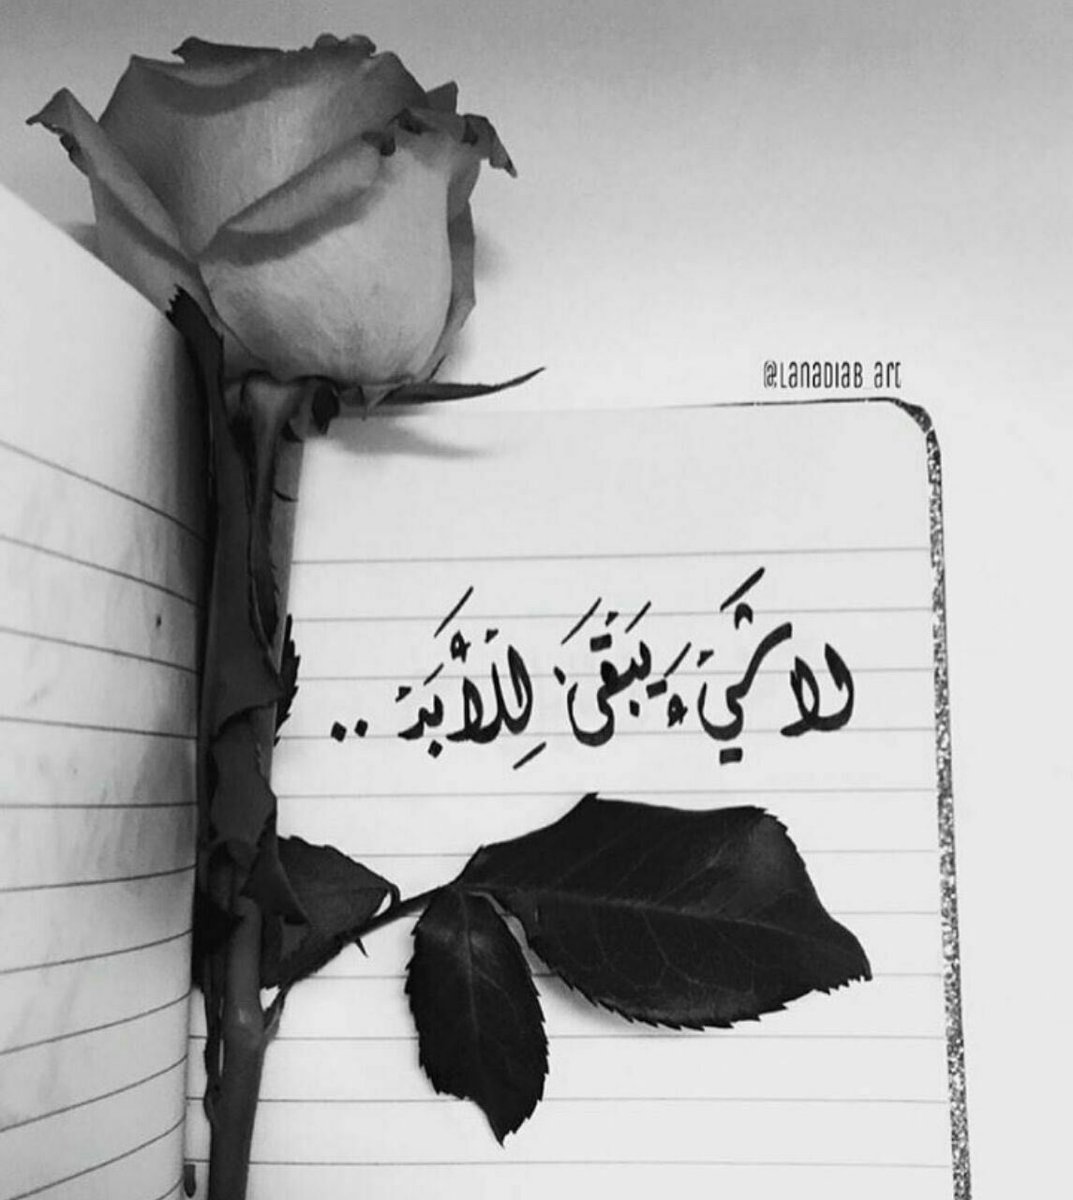 @LANADIAB_art
لا شَيْءَ يَبْقَىٰ لِلْأَبَدْ ..